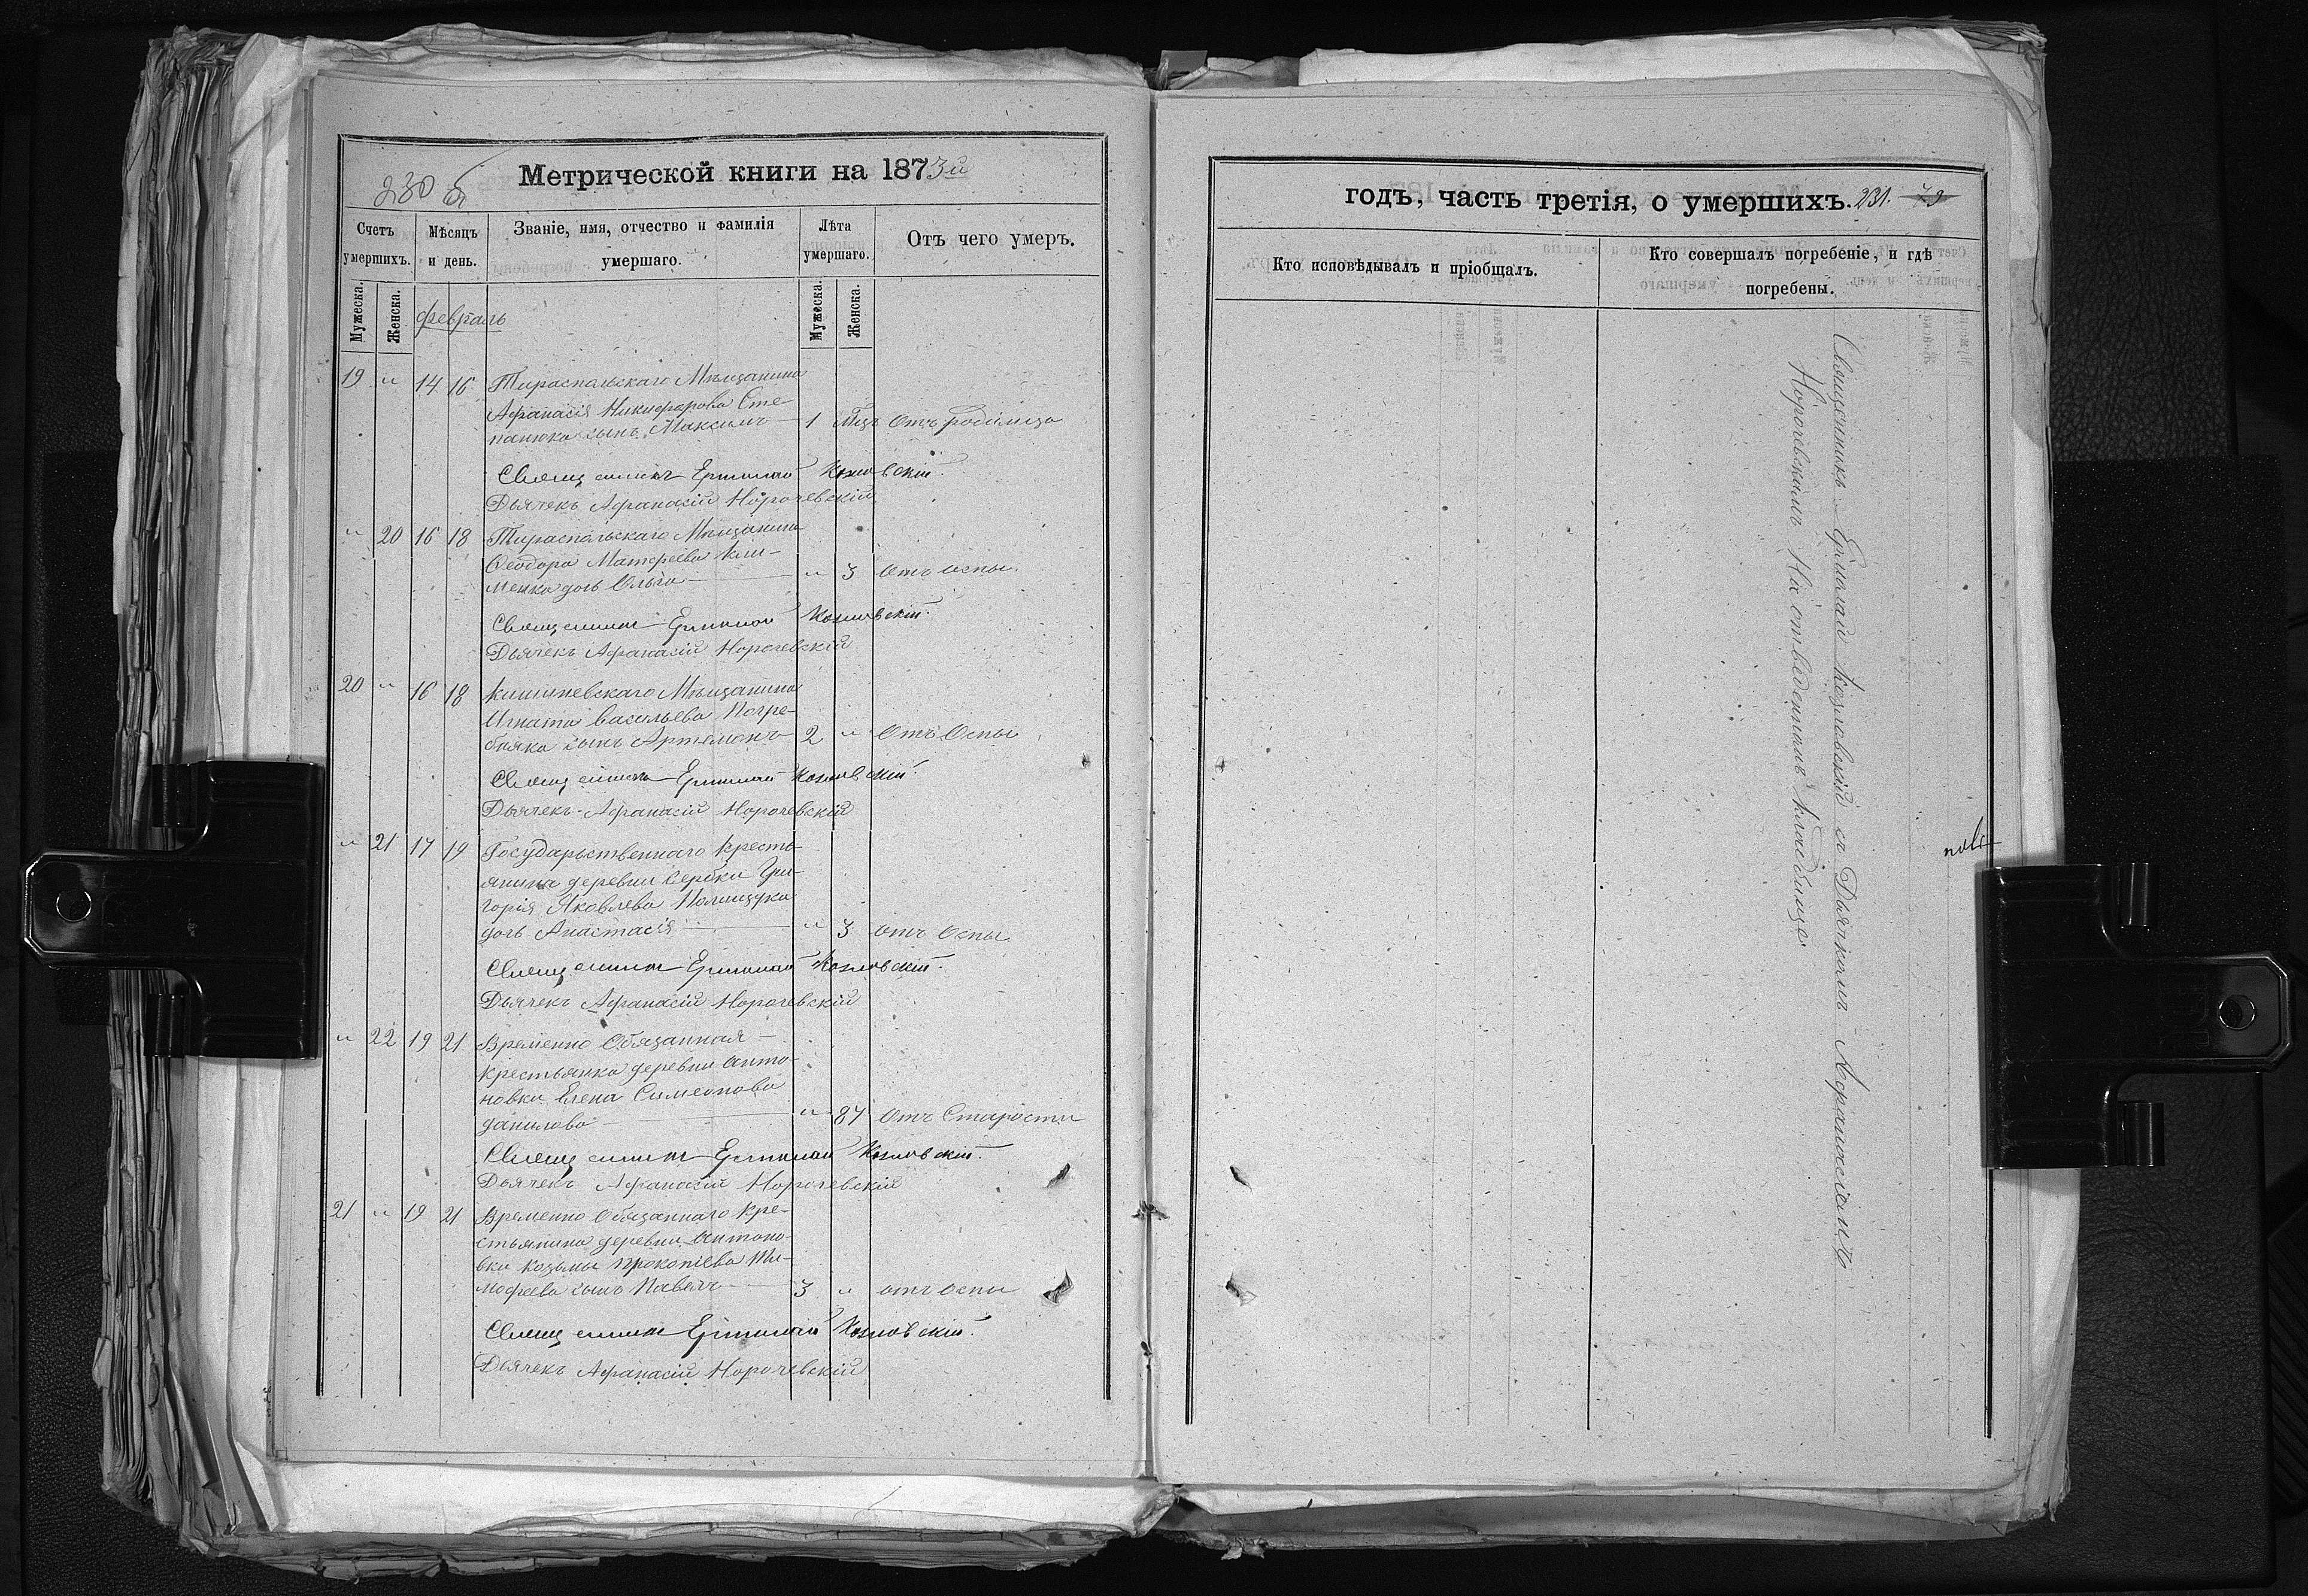 230 б
Метрической книги на 1873й
Счетъ умершихъ.
Мѣсяцъ и день.
Званіе, имя, отчество и фамилія умершаго.
Лѣта умершаго.
Отъ чего умеръ.
Мужеска.
Женска.
Мужеска.
Женска.
февраль
19 „ 14 16 Тираспольскаго Мѣщанина
Афанасія Никифорова Сте-
панюка сынъ Максимъ 1 Мцъ Отъ родимца
Священникъ Ермолай Козловскій.
Дьячекъ Афанасій Норочевскій
„ 20 16 18 Тираспольскаго Мѣщанина
Феодора Матфеева Кли-
менка дочь Ольга — „ 3 отъ оспы.
Священникъ Ермолай Козловскій.
Дьячекъ Афанасій Норочевскій
20 „ 16 18 Кишиневскаго Мѣщанина
Игната Васильева Погре-
бняка сынъ Артемонъ 2 „ Отъ Оспы
Священникъ Ермолай Козловскій.
Дьячекъ Афанасій Норочевскій
„ 21 17 19 Государственнаго Кресть-
янина деревни Сербки Гри-
горія Яковлева Полищука
дочь Анастасія — „ 3 отъ Оспы
Священникъ Ермолай Козловскій.
Дьячекъ Афанасій Норочевскій
„ 22 19 21 Временно Обязанная —
крестьянка деревни Анто-
новки Елена Симеонова
Данилова — „ 87 Отъ Старости
Священникъ Ермолай Козловскій.
Дьячекъ Афанасій Норочевскій
21 „ 19 21 Временно Обязаннаго Кре-
стьянина деревни Антоно-
вки Козьмы Прокопіева Ти-
мофеева сынъ Павелъ — 3 „ отъ оспы
Священникъ Ермолай Козловскій.
Дьячекъ Афанасій Норочевскій
годъ, часть третія, о умершихъ. 231. 79
Кто исповѣдывалъ и пріобщалъ.
Кто совершалъ погребеніе, и гдѣ погребены.
Священникъ Ермолай Козловскій съ Дьячкомъ Афанасіемъ
Норочевскимъ На отведенномъ кладбище.